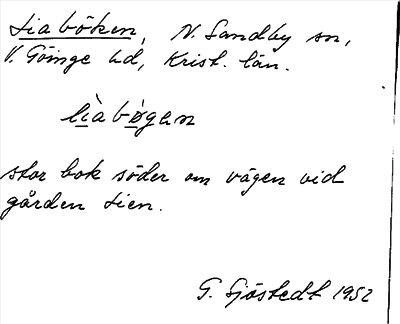 Liaböken, N. Sandby sn,
V. Göinge hd, Krist. län.
lìabø̀gan
stor bok söder om vägen vid
gården Lien.
G. Sjöstedt 1952